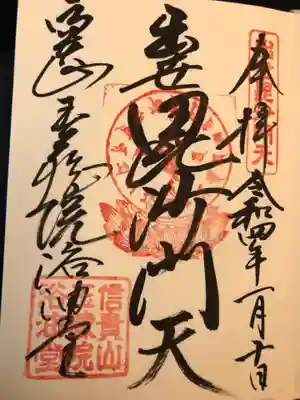 奉拝 令和四年一月十日
毘沙門天
信貴山 玉蔵院 浴油堂
信貴山
玉蔵院
浴油堂